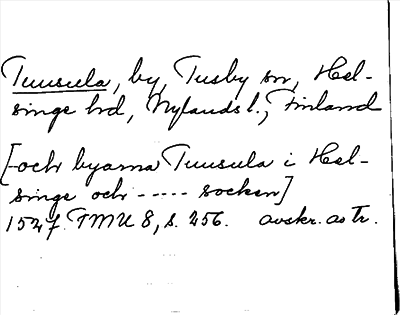 Tuusula, by, Tusby sn, Hel-
singe hd, Nylands l., Finland
[-och byarna Tuusula i Hel-
singe och ----- socken]
1547. TMU 8, s. 256. avskr. as tr.